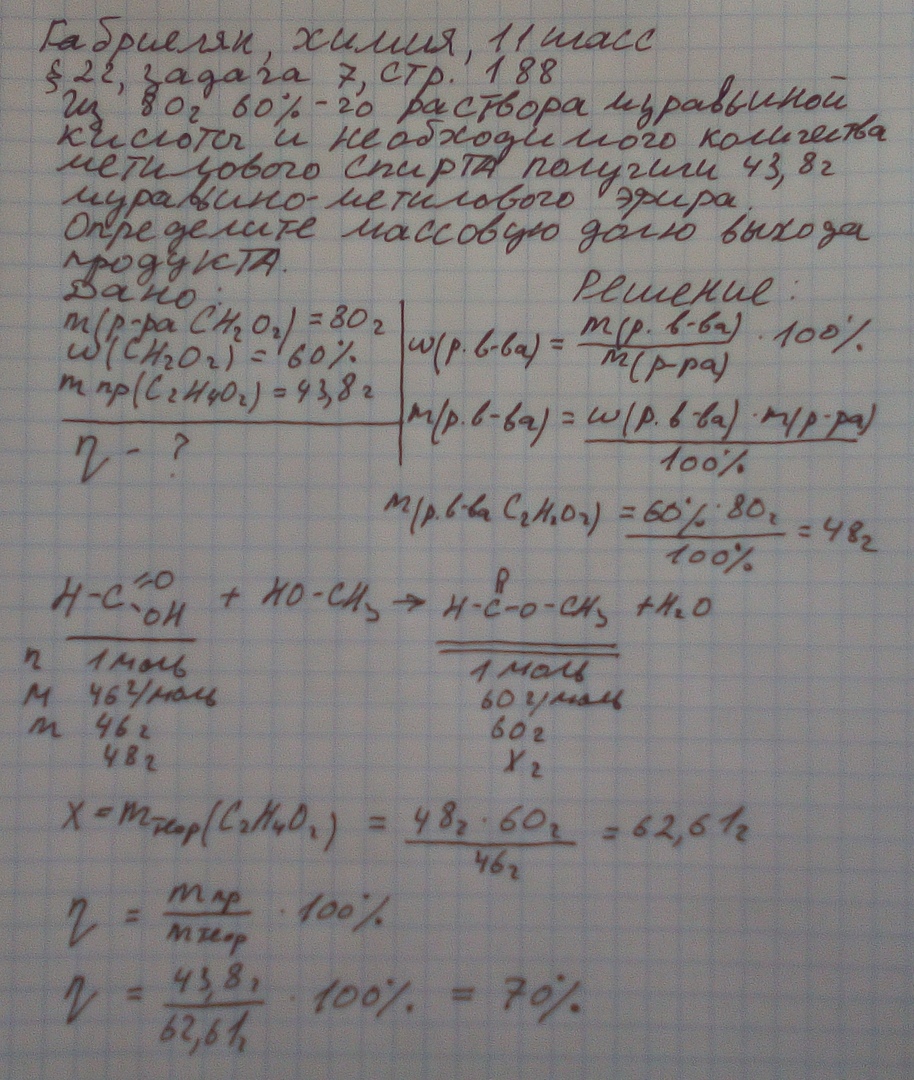 Габриелян, химия, 11 класс
§ 22, задача 7, стр. 188
Из 80г 60%-го раствора муравьиной
кислоты и необходимого количества
метилового спирта получили 43,8г
муравьино-метилового эфира.
Определите массовую долю выхода
продукта.
Дано:
m(р-ра CH2O2) = 80г
w(CH2O2) = 60%
m пр(C2H4O2) = 43,8г
η - ?
Решение:
w(р.в-ва) = m(р.в-ва) / m(р-ра) · 100%
m(р.в-ва) = w(р.в-ва) · m(р-ра) / 100%
m(р.в-ва C2H2O2) = 60% · 80г / 100% = 48г
H-C=O OH + HO-CH3 → H-C-O-CH3 + H2O
n 1 моль 1 моль
M 46г/моль 60г/моль
m 46г 60г
48г Xг
X = mтеор(C2H4O2) = 48г · 60г / 46г = 62,61г
η = m пр / m теор · 100%
η = 43,8г / 62,61г · 100% = 70%